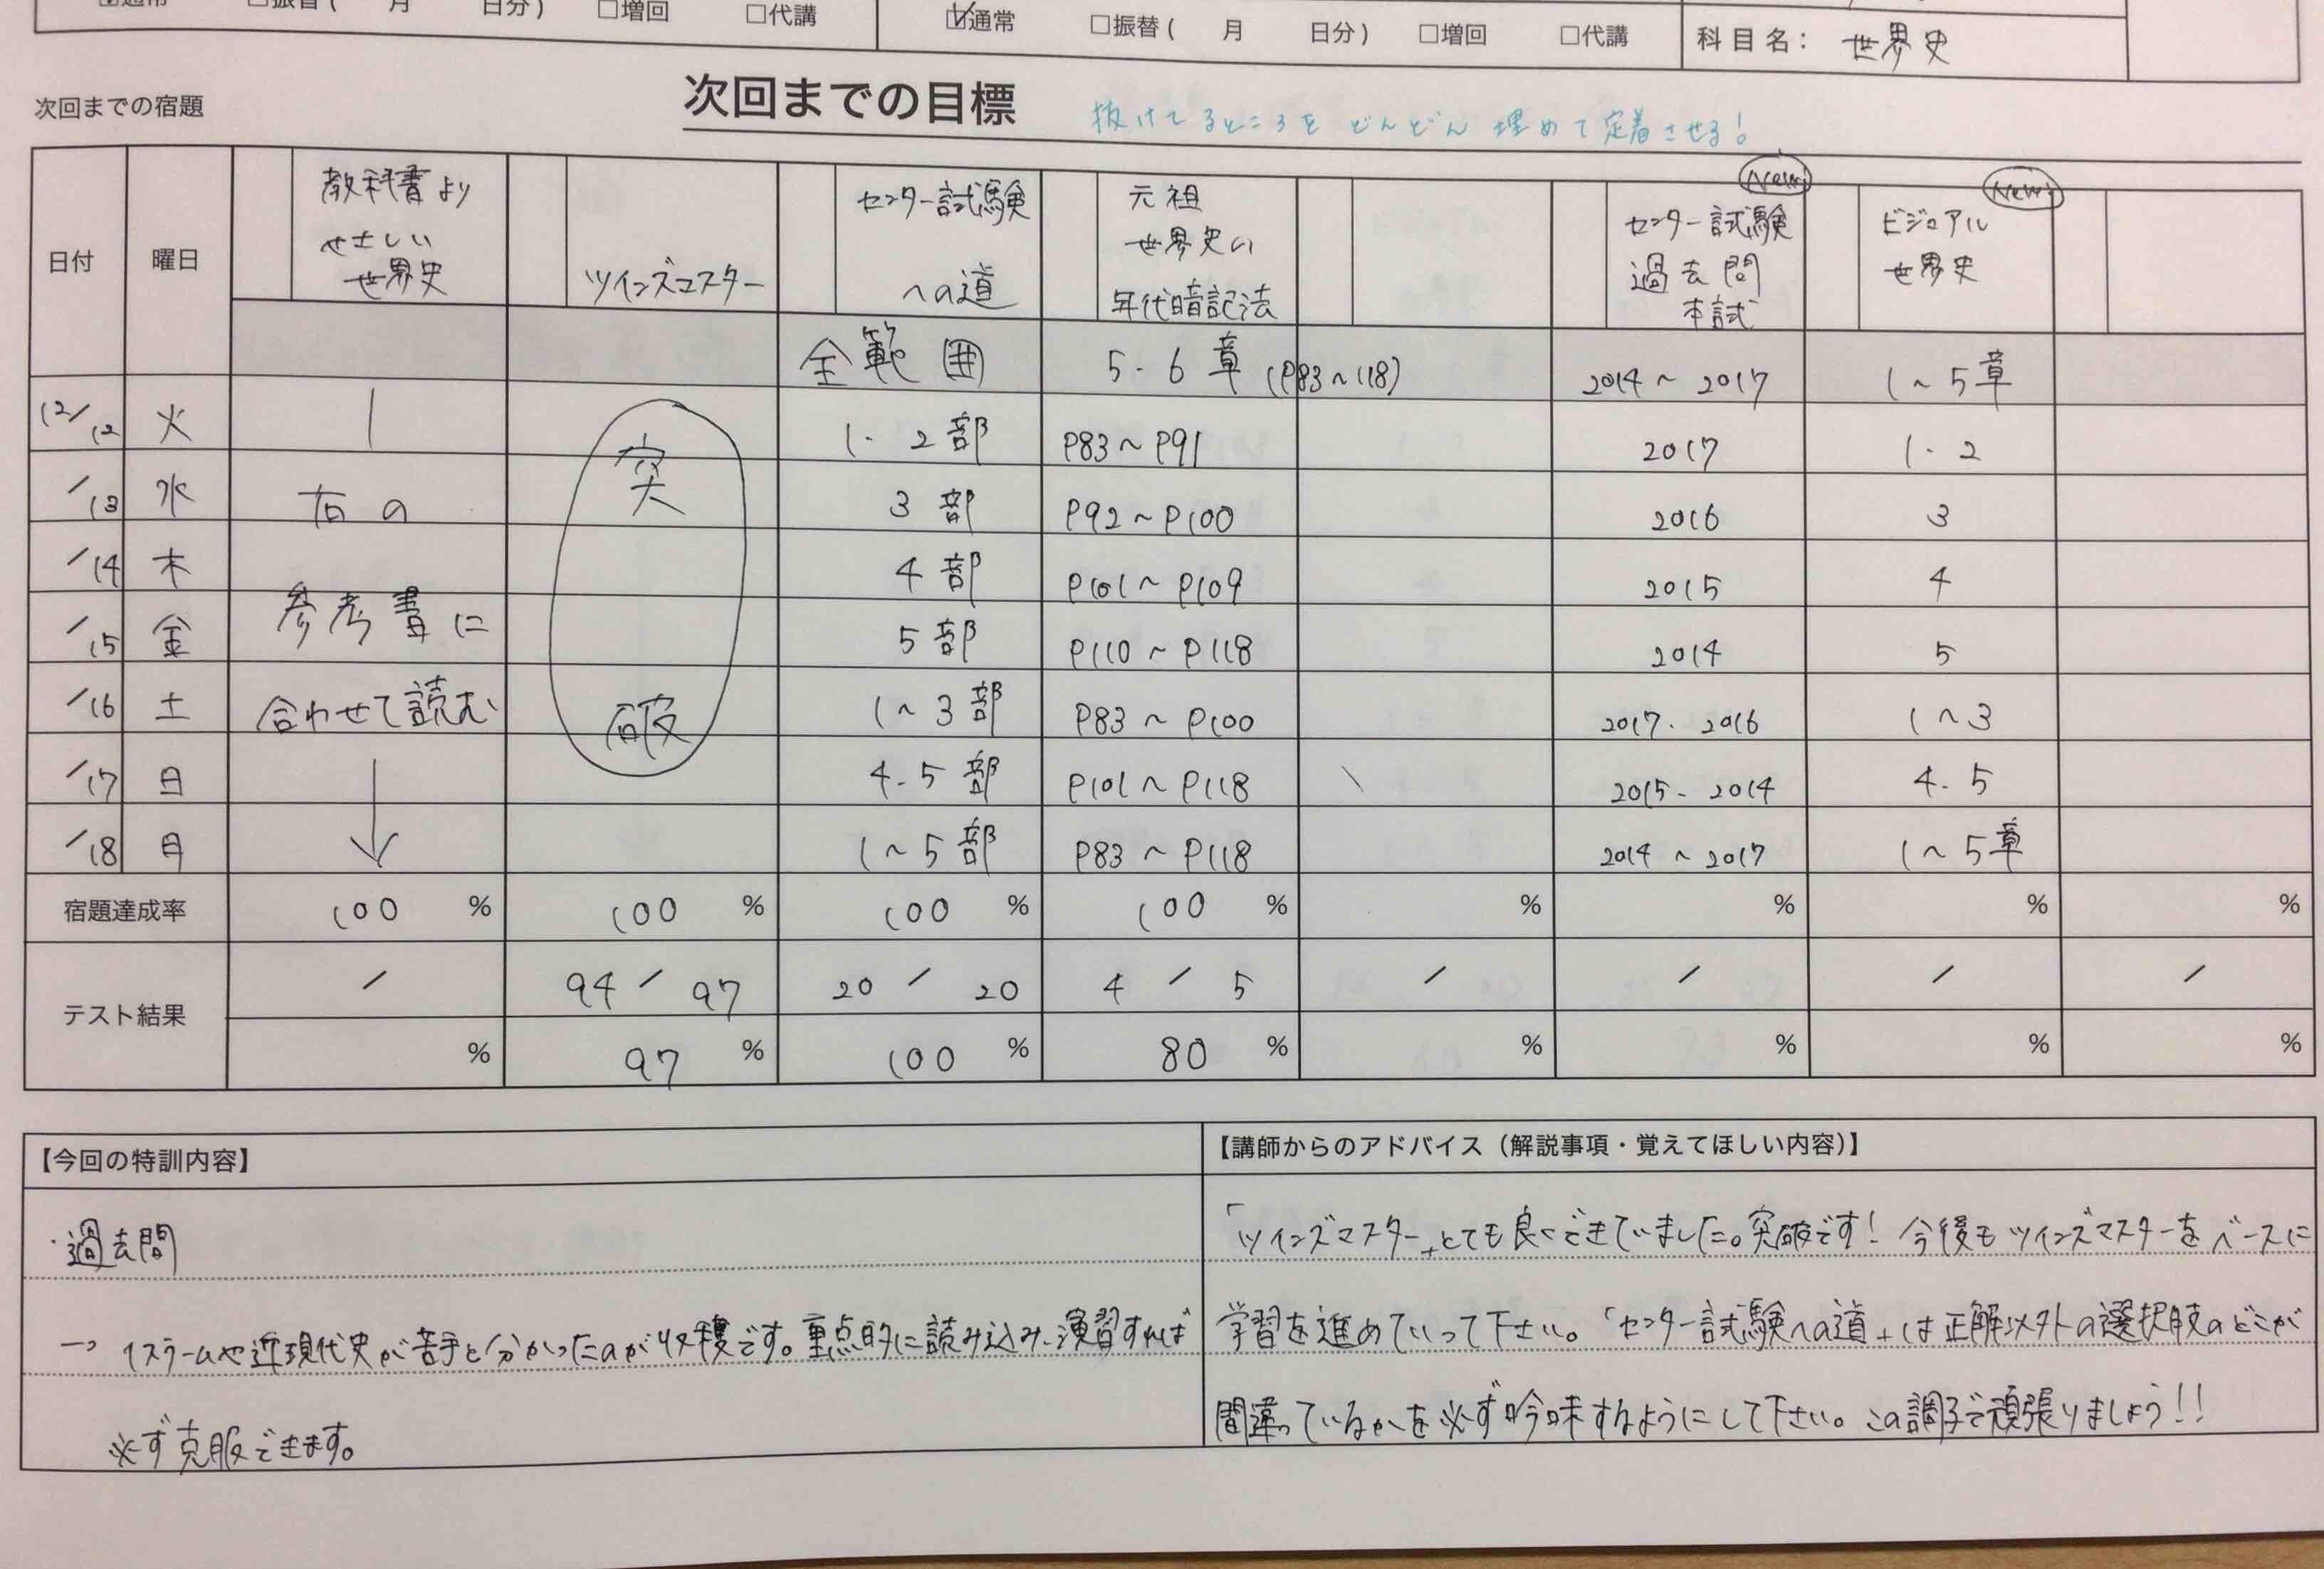 ☑通常 □振替( 月 日分) □増回 □代講 ☑通常 □振替( 月 日分) □増回 □代講 科目名: 世界史
次回までの宿題 次回までの目標 抜けてるところを どんどん 埋めて定着させる!
日付 曜日 教科書より やさしい 世界史 ツインズマスター センター試験 への道 元祖 世界史の 年代暗記法 New! センター試験 過去問 本試 New! ビジュアル 世界史
全範囲 5・6章 (P83〜118) 2014〜2017 1〜5章
12/12 火 1・2部 P83〜P91 2017 1・2
/13 水 右の 突 3部 P92〜P100 2016 3
/14 木 4部 P101〜P109 2015 4
/15 金 参考書に 5部 P110〜P118 2014 5
/16 土 合わせて読む 破 1〜3部 P83〜P100 2017・2016 1〜3
/17 日 4・5部 P101〜P118 2015・2014 4・5
/18 月 1〜5部 P83〜P118 2014〜2017 1〜5章
宿題達成率 100 % 100 % 100 % 100 % % % % %
テスト結果 / 94/97 20/20 4/5 / / / /
% 97 % 100 % 80 % % % % %
【今回の特訓内容】
・過去問
→ イスラームや近現代史が苦手と分かったのが収穫です。重点的に読み込み・演習すれば
必ず克服できます。
【講師からのアドバイス(解説事項・覚えてほしい内容)】
「ツインズマスター」とても良くできていました。突破です! 今後もツインズマスターをベースに
学習を進めていって下さい。「センター試験への道」は正解以外の選択肢のどこが
間違っているかを必ず吟味するようにして下さい。この調子で頑張りましょう!!